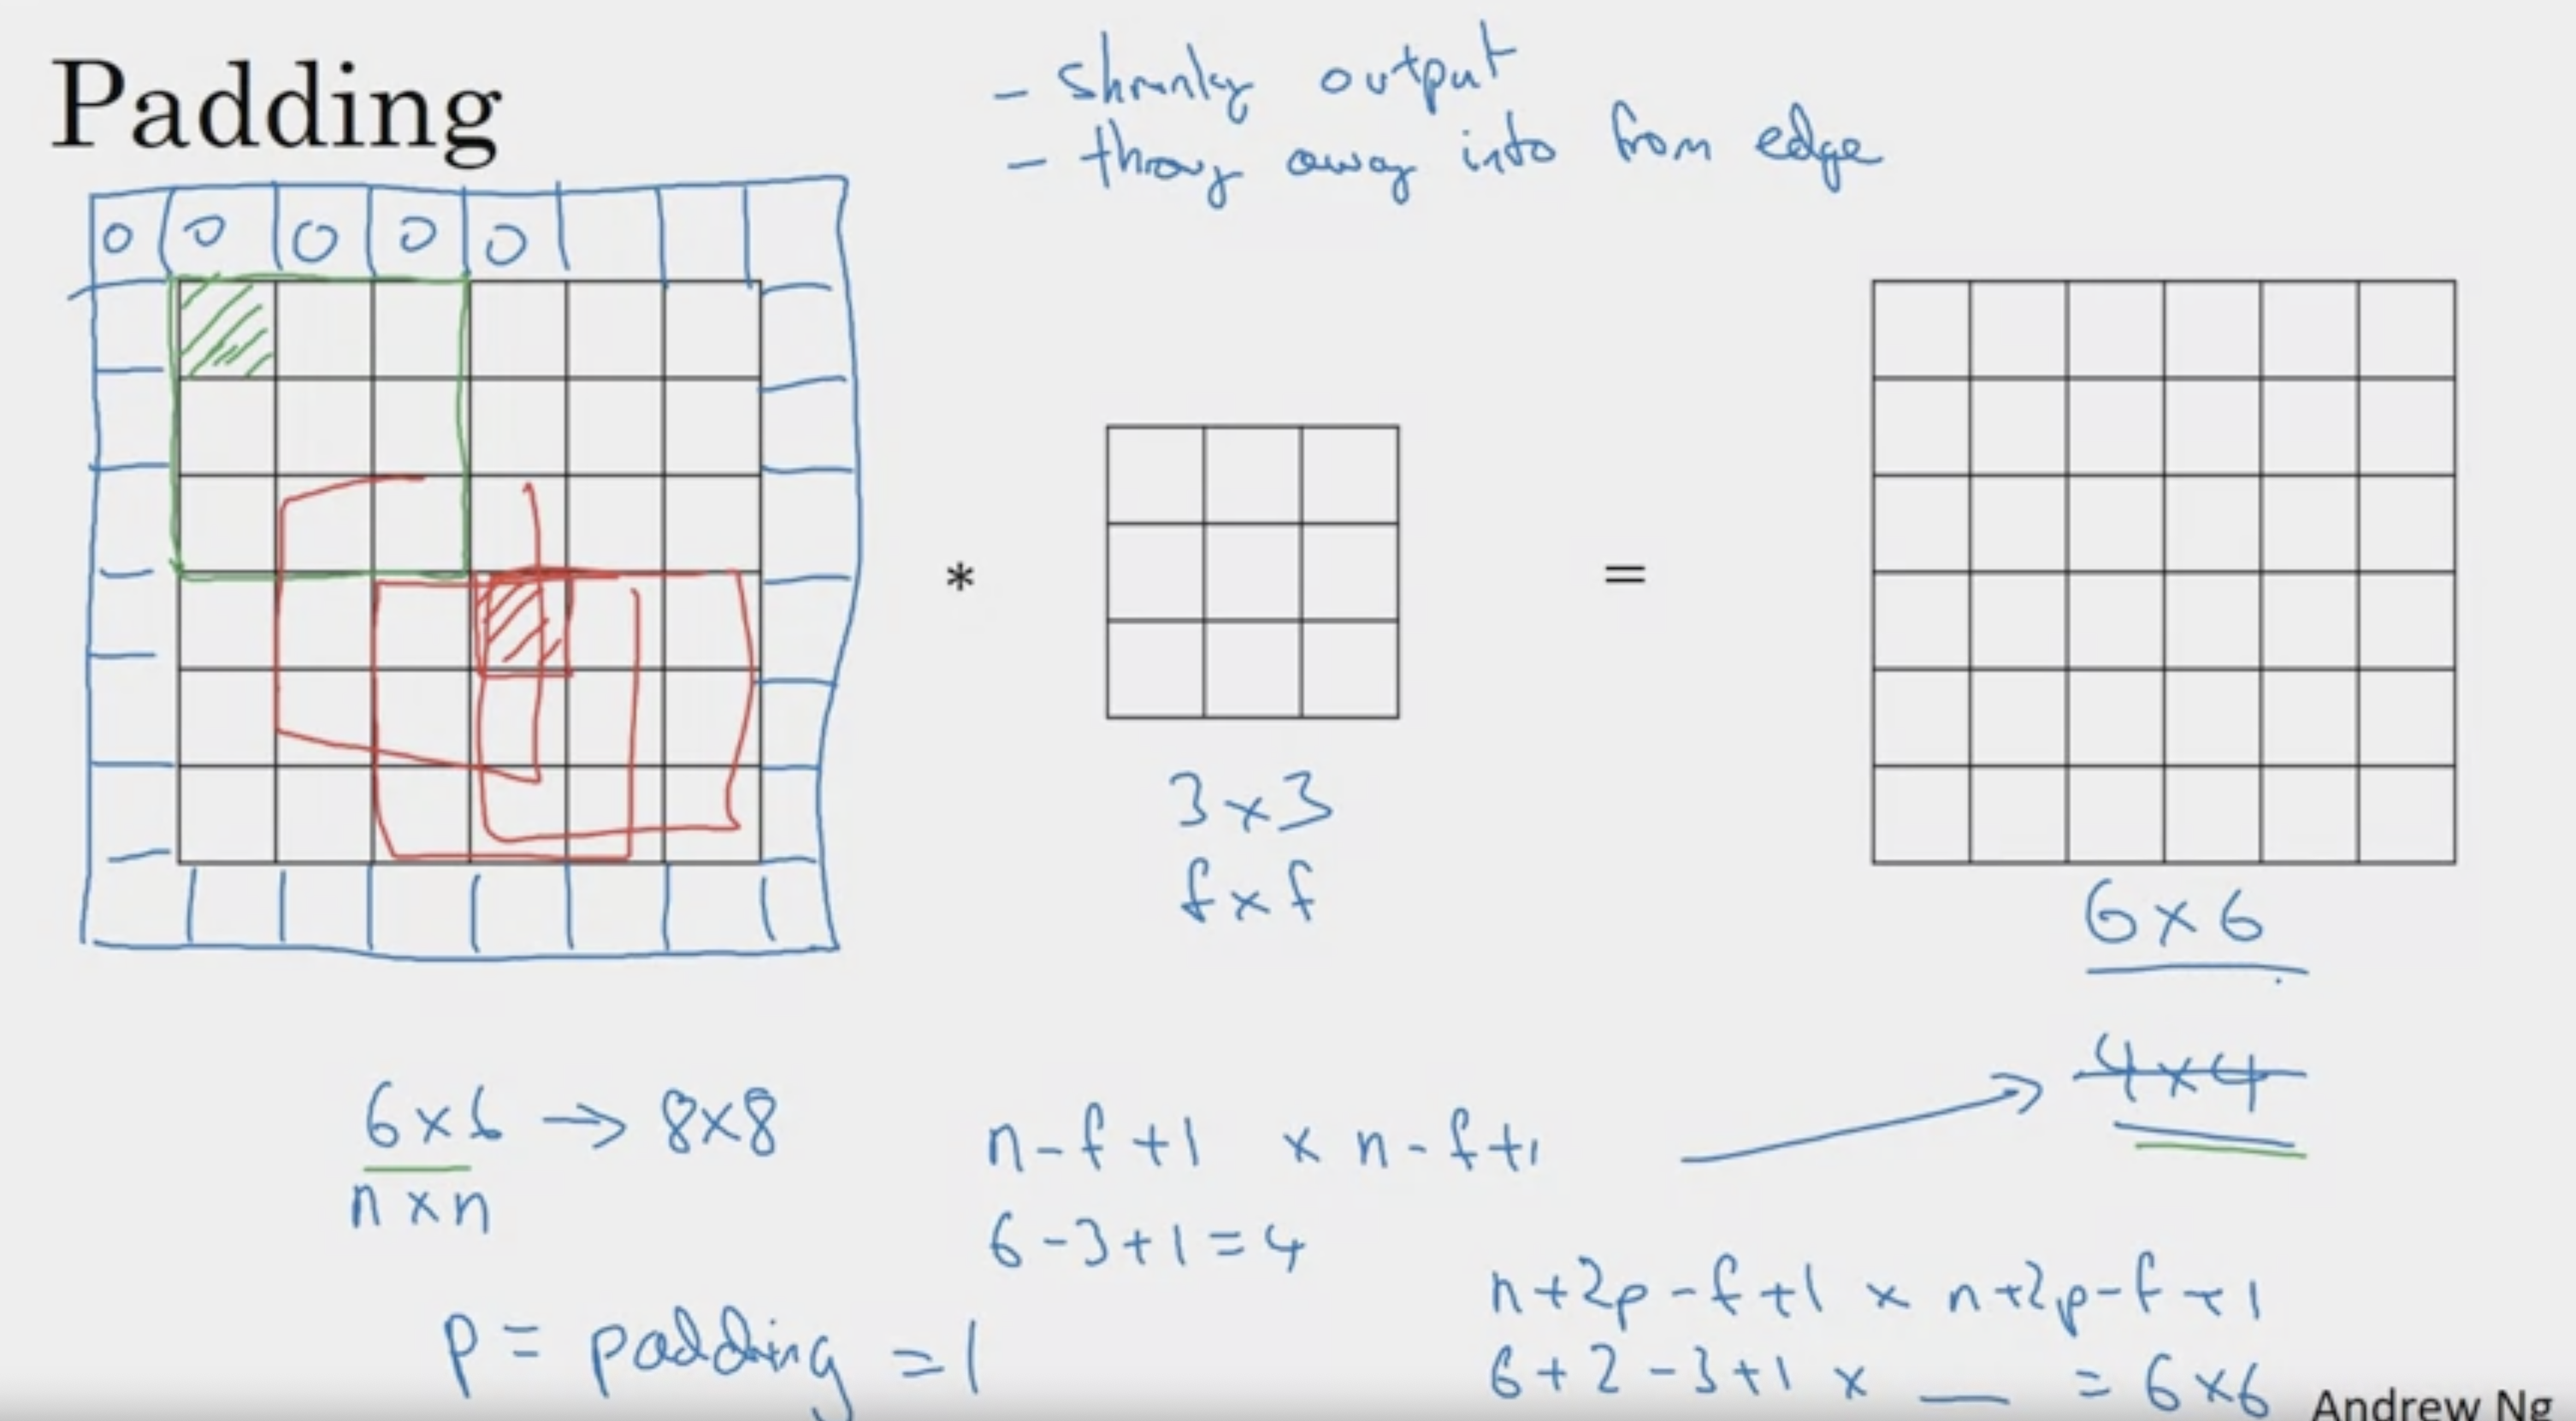 Padding
- shrinky output
- throwy away info from edge
0 0 0 0 0
* =
3 x 3
f x f
6 x 6
4 x 4
6 x 6 → 8 x 8
n x n
n - f + 1 x n - f + 1
6 - 3 + 1 = 4
p = padding = 1
n + 2p - f + 1 x n + 2p - f + 1
6 + 2 - 3 + 1 x __ = 6 x 6
Andrew Ng